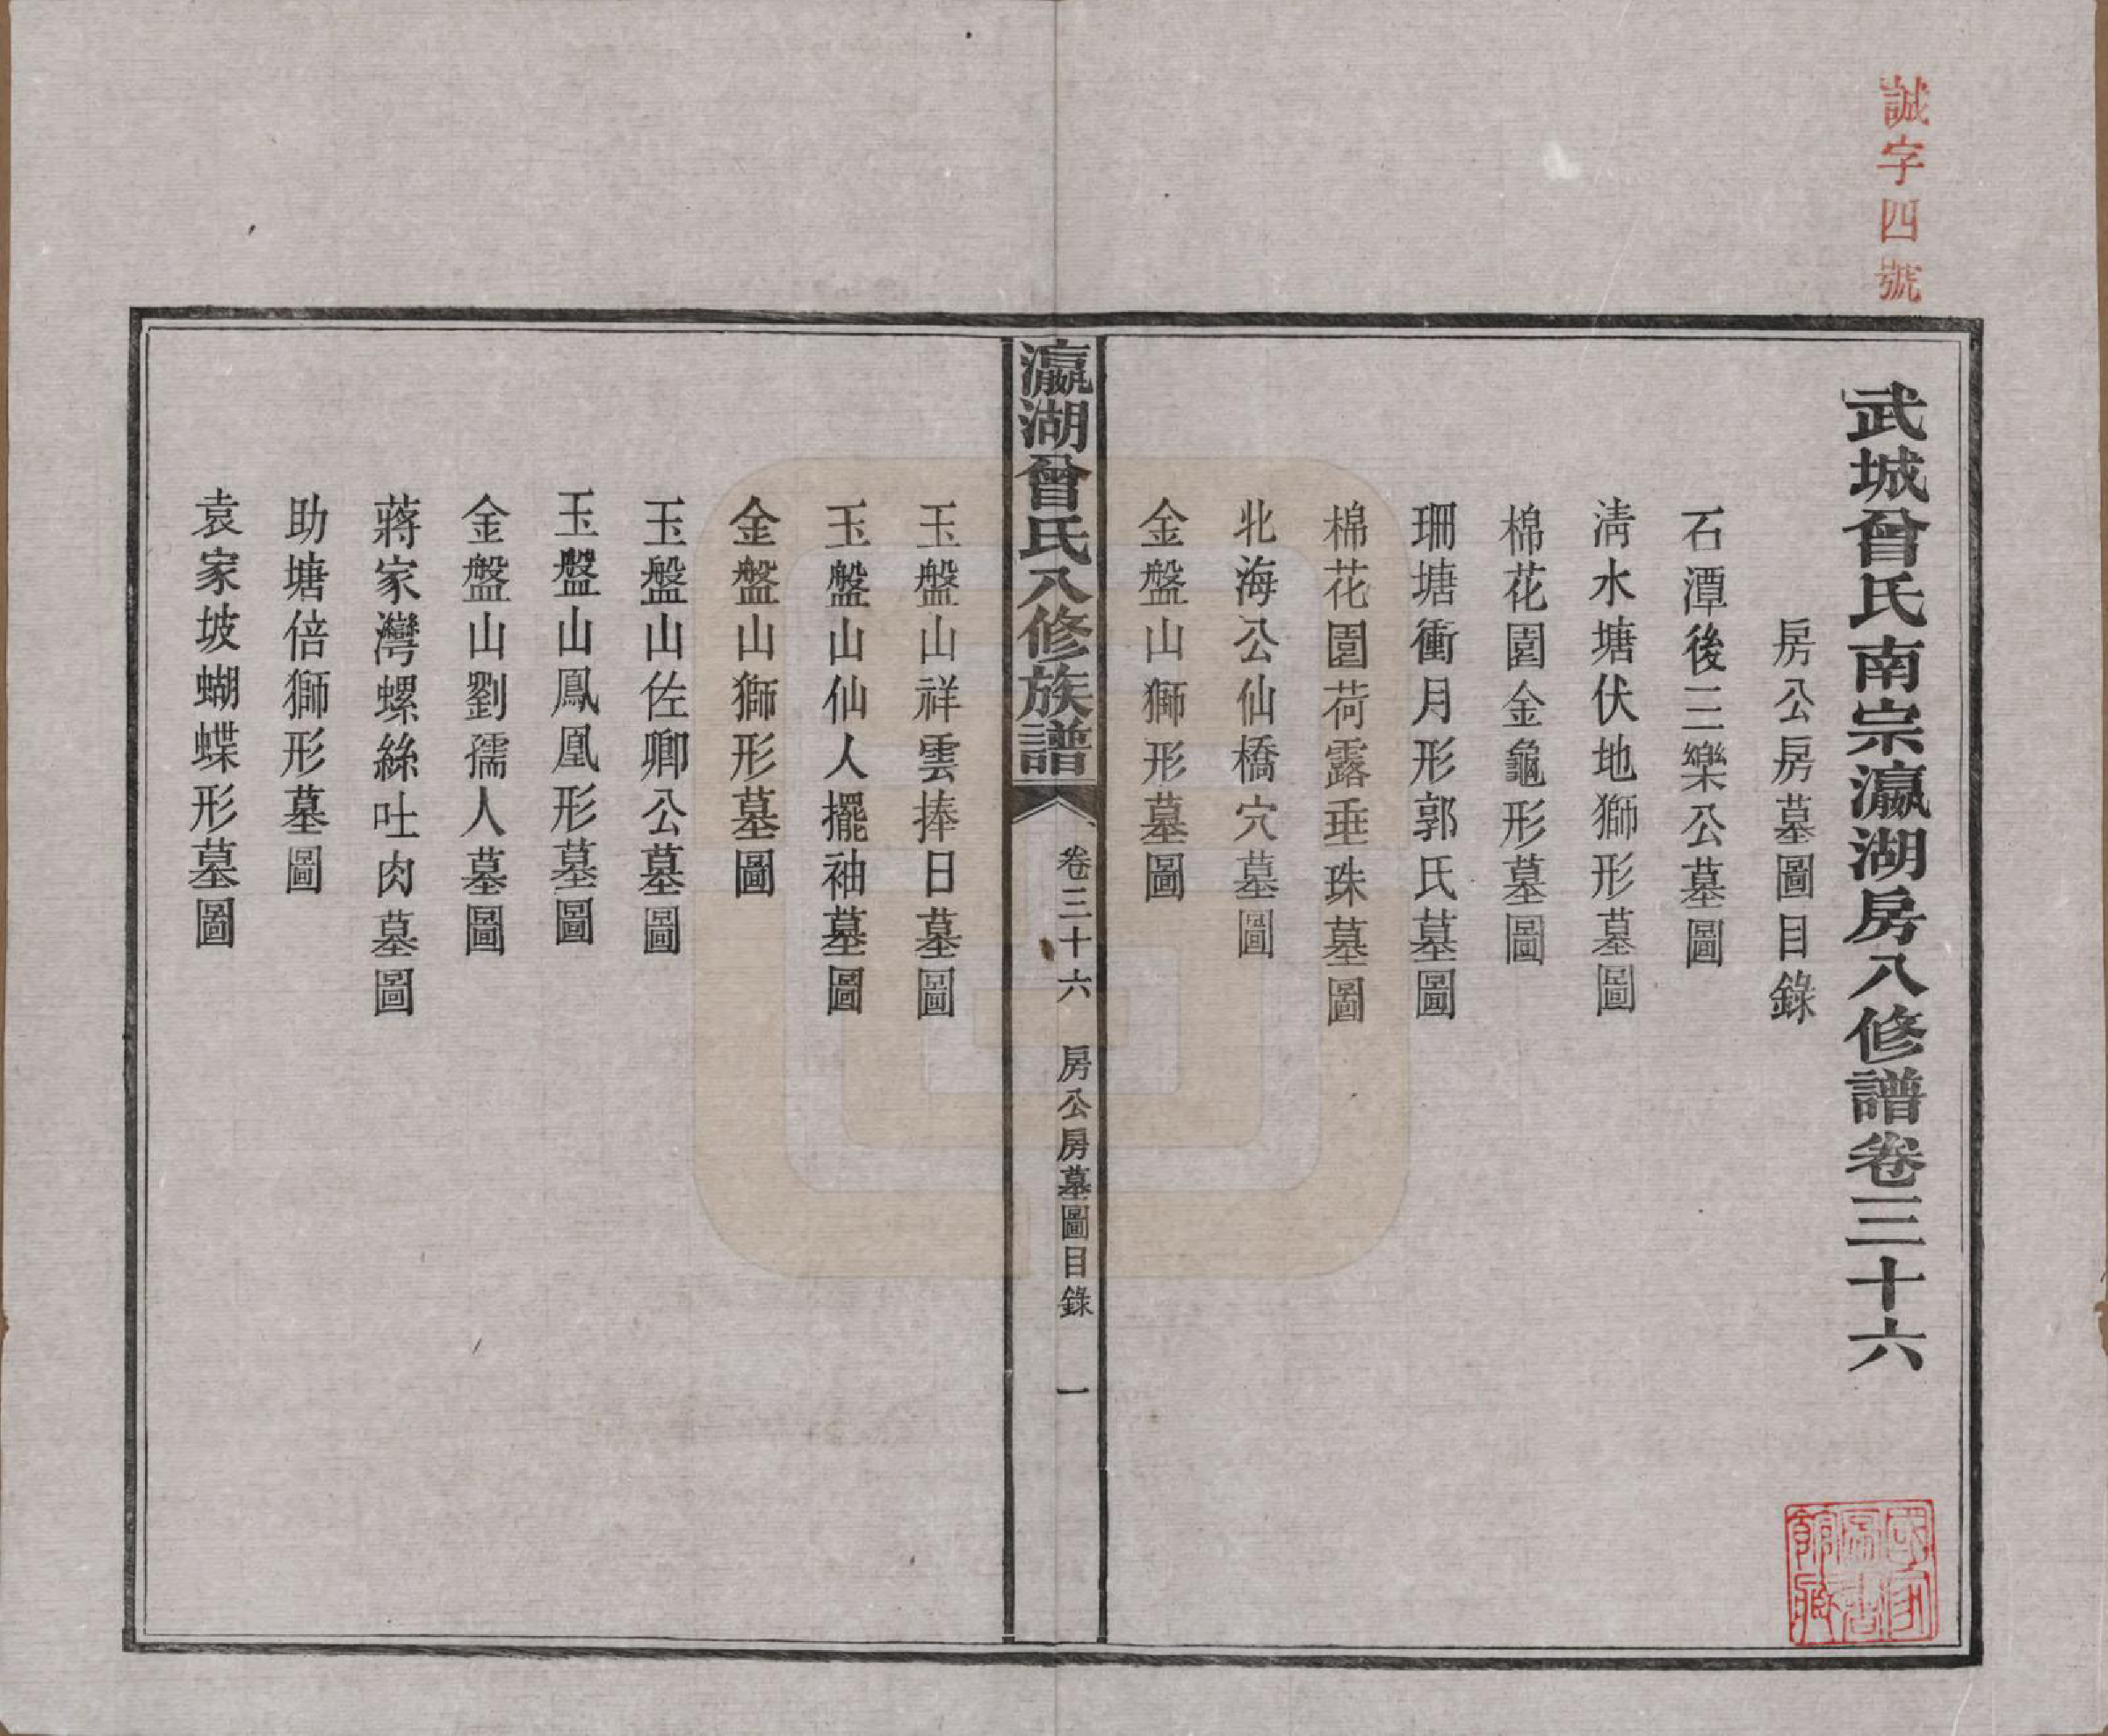 誠字四號
武城曾氏南宗瀛湖房八修譜卷三十六
房公房墓圖目錄
石潭後三樂公墓圖
淸水塘伏地獅形墓圖
棉花園金龜形墓圖
珊塘衝月形郭氏墓圖
棉花園荷露垂珠墓圖
北海公仙橋穴墓圖
金盤山獅形墓圖
瀛湖曾氏八修族譜
卷三十六
房公房墓圖目錄
一
玉盤山祥雲捧日墓圖
玉盤山仙人擺袖墓圖
金盤山獅形墓圖
玉盤山佐卿公墓圖
玉盤山鳳凰形墓圖
金盤山劉孺人墓圖
蔣家灣螺絲吐肉墓圖
助塘倍獅形墓圖
袁家坡蝴蝶形墓圖
國家圖書館藏